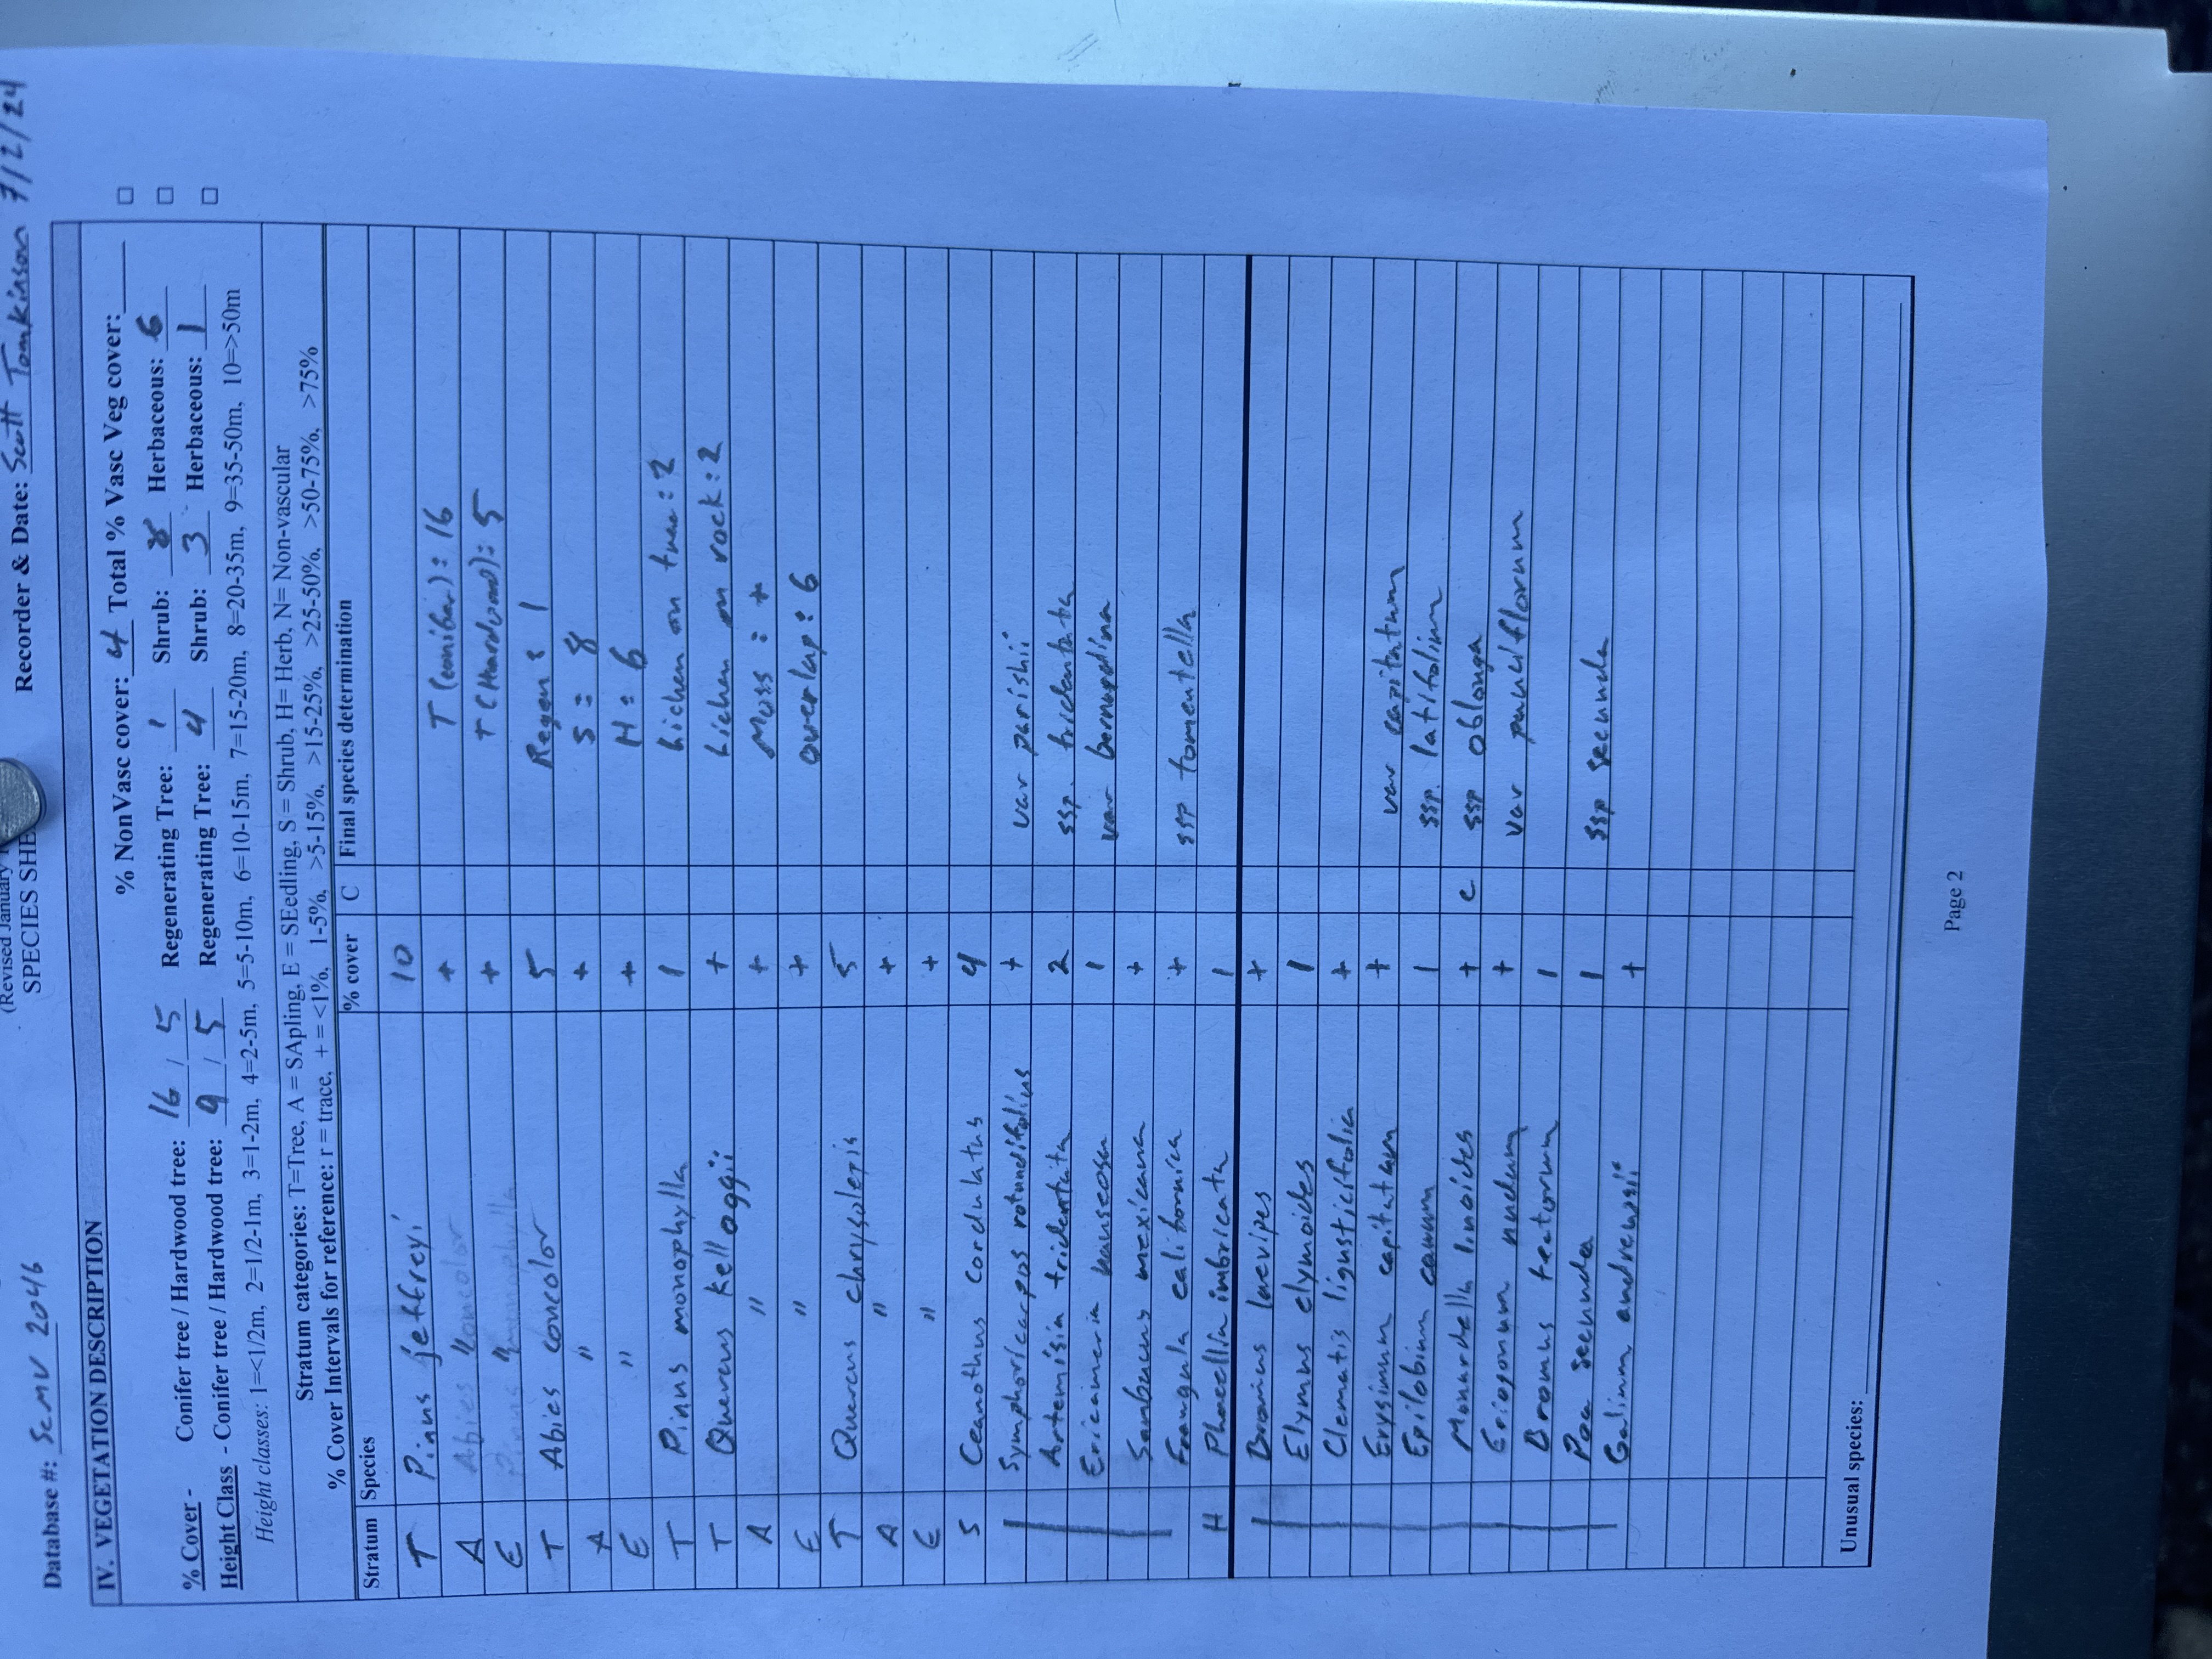 (Revised January
SPECIES SHE
Database #: SCMV 2046 Recorder & Date: Scott Tomkinson 7/12/24
IV. VEGETATION DESCRIPTION
% NonVasc cover: 4 Total % Vasc Veg cover:____ □
% Cover - Conifer tree / Hardwood tree: 16 / 5 Regenerating Tree: 1 Shrub: 8 Herbaceous: 6 □
Height Class - Conifer tree / Hardwood tree: 9 / 5 Regenerating Tree: 4 Shrub: 3 Herbaceous: 1 □
Height classes: 1=<1/2m, 2=1/2-1m, 3=1-2m, 4=2-5m, 5=5-10m, 6=10-15m, 7=15-20m, 8=20-35m, 9=35-50m, 10=>50m
Stratum categories: T=Tree, A = SApling, E = SEedling, S = Shrub, H= Herb, N= Non-vascular
% Cover Intervals for reference: r = trace, + = <1%, 1-5%, >5-15%, >15-25%, >25-50%, >50-75%, >75%
Stratum Species % cover C Final species determination
T Pinus jeffreyi 10
A " + T (conifer): 16
E " + T (Hardwood): 5
T Abies concolor 5 Regen: 1
A " + S = 8
E " + H = 6
T Pinus monophylla 1 Lichen on tree: 2
T Quercus kelloggii + Lichen on rock: 2
A " + Moss: +
E " + overlap: 6
T Quercus chrysolepis 5
A " +
E " +
S Ceanothus cordulatus 4
Symphoricarpos rotundifolius + var parishii
Artemisia tridentata 2 ssp. tridentata
Ericameria nauseosa 1 var bernardina
Sambucus mexicana +
Frangula californica + ssp tomentella
H Phacelia imbricata 1
Bromus laevipes +
Elymus elymoides 1
Clematis ligusticifolia +
Erysimum capitatum + var capitatum
Epilobium canum 1 ssp. latifolium
Monardella linoides + C ssp oblonga
Eriogonum nudum + var pauciflorum
Bromus tectorum 1
Poa secunda 1 ssp secunda
Galium andrewsii +
Unusual species:
Page 2